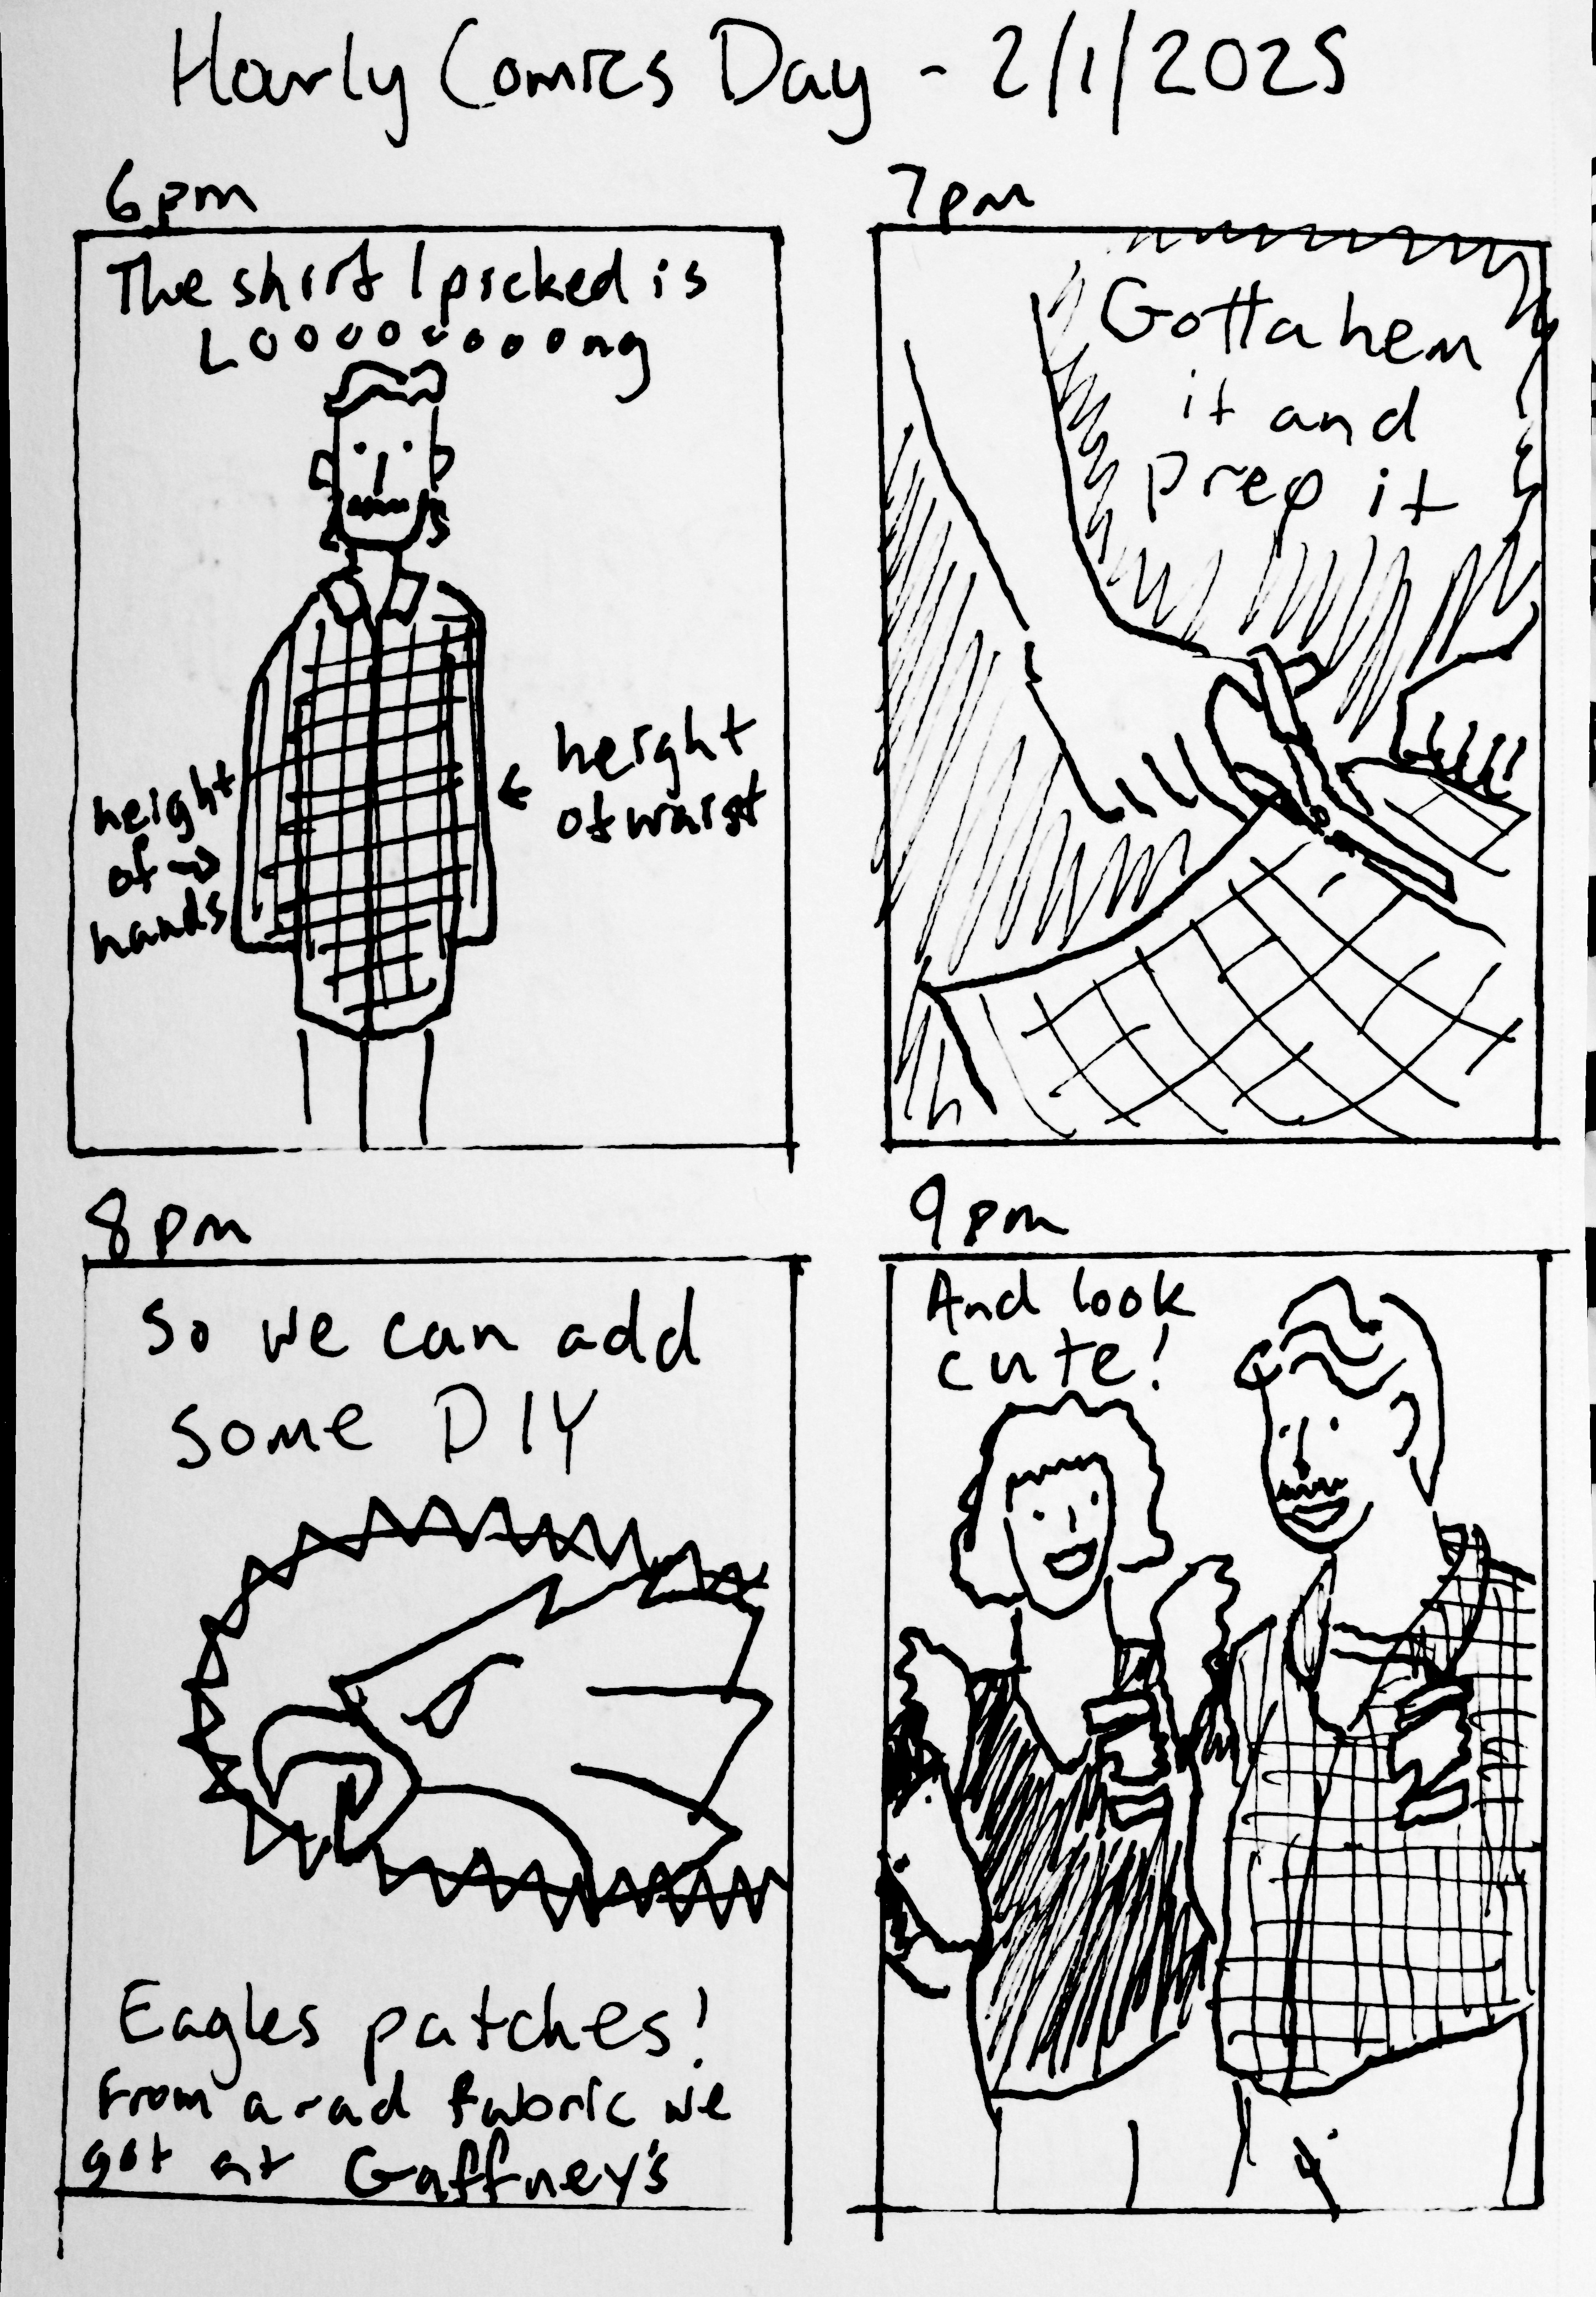 Hourly Comics Day - 2/1/2025
6pm
The shirt I picked is
Looooooooong
height
of →
hands
← height
of waist
7pm
Gotta hem
it and
prep it
8pm
So we can add
some DIY
Eagles patches!
from a rad fabric we
got at Gaffney's
9pm
And look
cute!